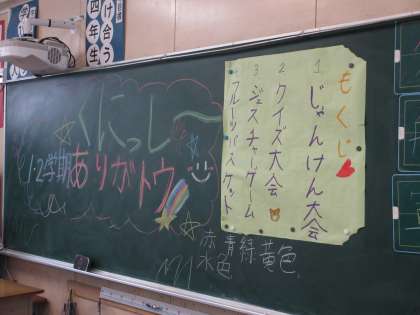 け合う
四年生
くにっし〜
1・2学期ありがトウ
もくじ
1 じゃんけん大会
2 クイズ大会
3 ジェスチャーゲーム
4 フルーツバスケット
赤青緑黄色
水色